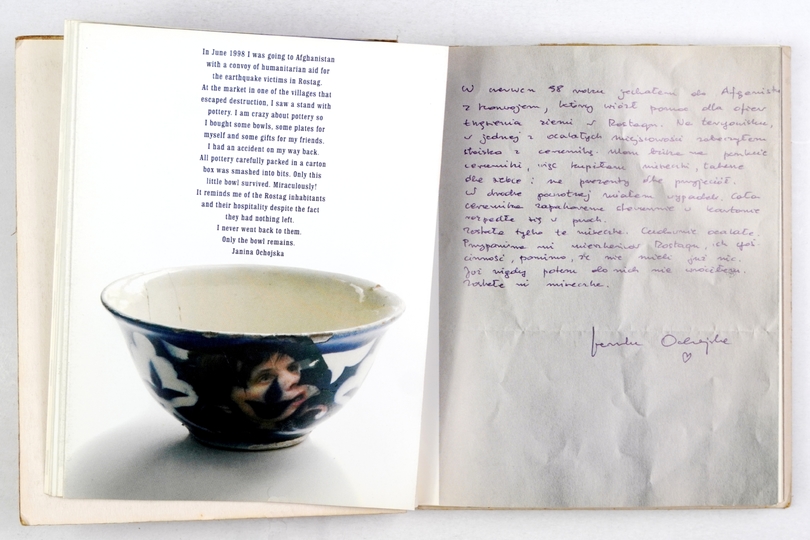 In June 1998 I was going to Afghanistan
with a convoy of humanitarian aid for
the earthquake victims in Rostag.
At the market in one of the villages that
escaped destruction, I saw a stand with
pottery. I am crazy about pottery so
I bought some bowls, some plates for
myself and some gifts for my friends.
I had an accident on my way back.
All pottery carefully packed in a carton
box was smashed into bits. Only this
little bowl survived. Miraculously!
It reminds me of the Rostag inhabitants
and their hospitality despite the fact
they had nothing left.
I never went back to them.
Only the bowl remains.
Janina Ochojska
W czerwcu 98 roku jechałam do Afganistanu
z konwojem, który wiózł pomoc dla ofiar
trzęsienia ziemi w Rostagu. Na targowisku,
w jednej z ocalałych miejscowości zobaczyłam
stoisko z ceramiką. Mam bzika na punkcie
ceramiki, więc kupiłam miseczki, talerze
dla siebie i na prezenty dla przyjaciół.
W drodze powrotnej miałam wypadek. Cała
ceramika zapakowana starannie w kartonie
rozpadła się w puch.
Została tylko ta miseczka. Cudownie ocalała.
Przypomina mi mieszkańców Rostagu, ich gościnność,
pomimo, że nie mieli już nic.
Już nigdy potem do nich nie wróciłam.
Została mi miseczka.
Janina Ochojska